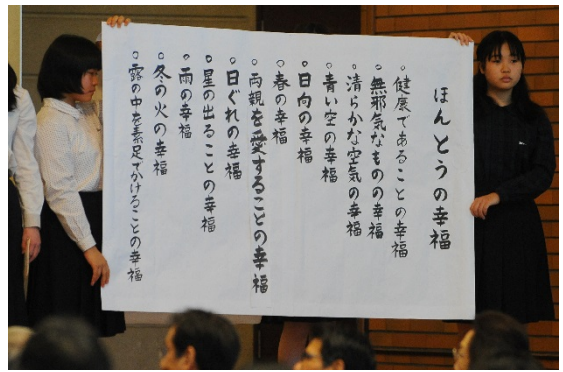 ほんとうの幸福
○健康であることの幸福
○無邪気なものの幸福
○清らかな空気の幸福
○青い空の幸福
○日向の幸福
○春の幸福
○両親を愛することの幸福
○日ぐれの幸福
○星の出ることの幸福
○雨の幸福
○冬の火の幸福
○露の中を素足でかけることの幸福